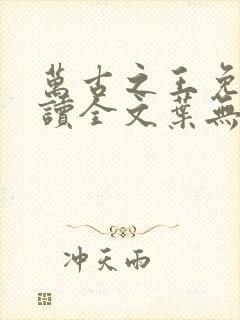 萬古之王免
讀全文葉無
冲天雨